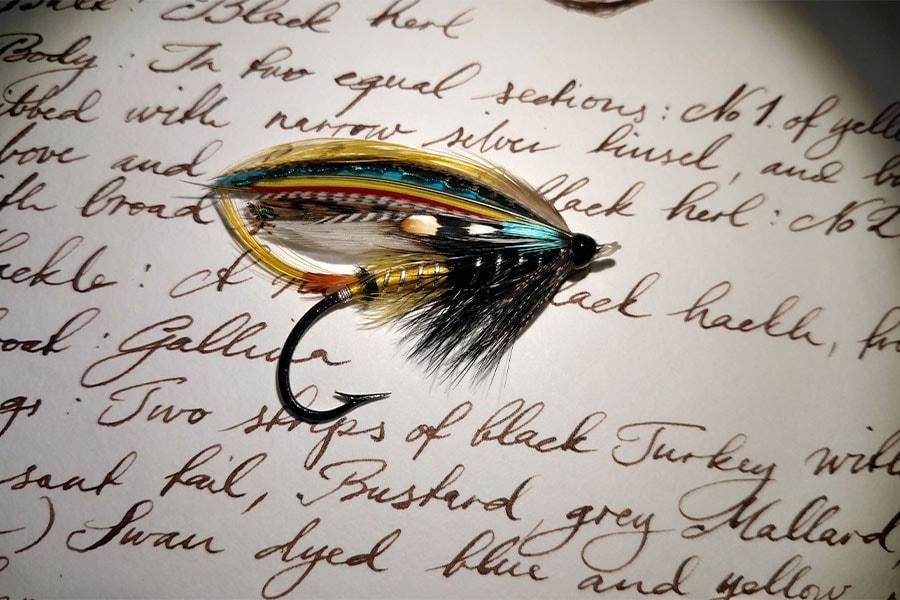 Black herl
Body : In two equal sections : No 1. of yell
ibbed with narrow silver tinsel, and
bove and lack herl : No 2
th broad
ackle : A lack hackle, fr
oat : Gallina
gs : Two strips of black Turkey with
sant tail, Bustard, grey Mallard,
) Swan dyed blue and yellow